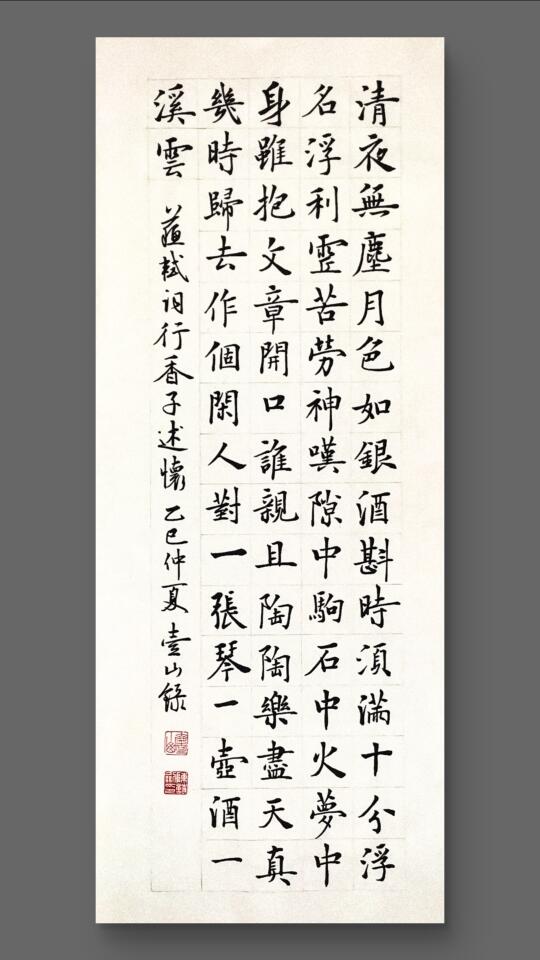 清夜無塵月色如銀酒斟時須滿十分浮
名浮利虛苦勞神嘆隙中駒石中火夢中
身雖抱文章開口誰親且陶陶樂盡天真
幾時歸去作個閑人對一張琴一壺酒一
溪雲 蘇軾詞行香子述懷 乙巳仲夏 壹山錄